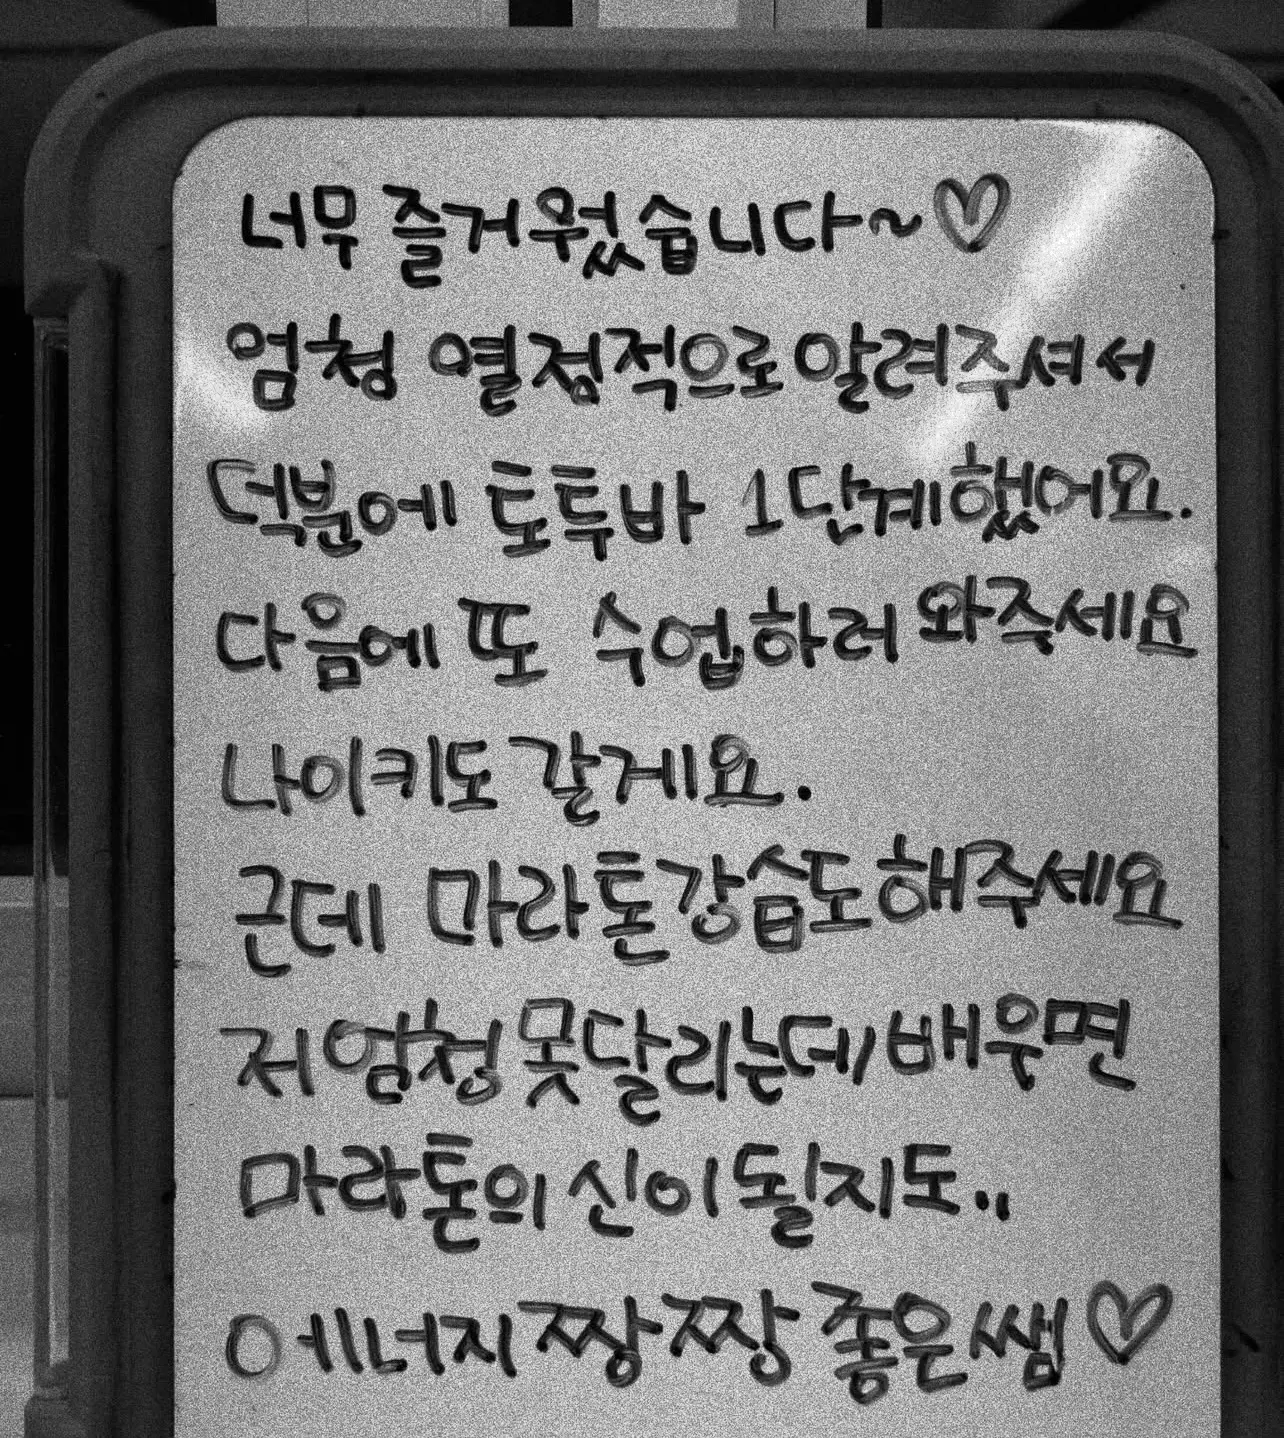 너무 즐거웠습니다~♡
엄청 열정적으로 알려주셔서
덕분에 토투바 1단계했어요.
다음에 또 수업하러 와주세요
나이키도 갈게요.
근데 마라톤강습도해주세요
저엄청못달리는데배우면
마라톤의신이될지도..
에너지짱짱좋은쌤♡